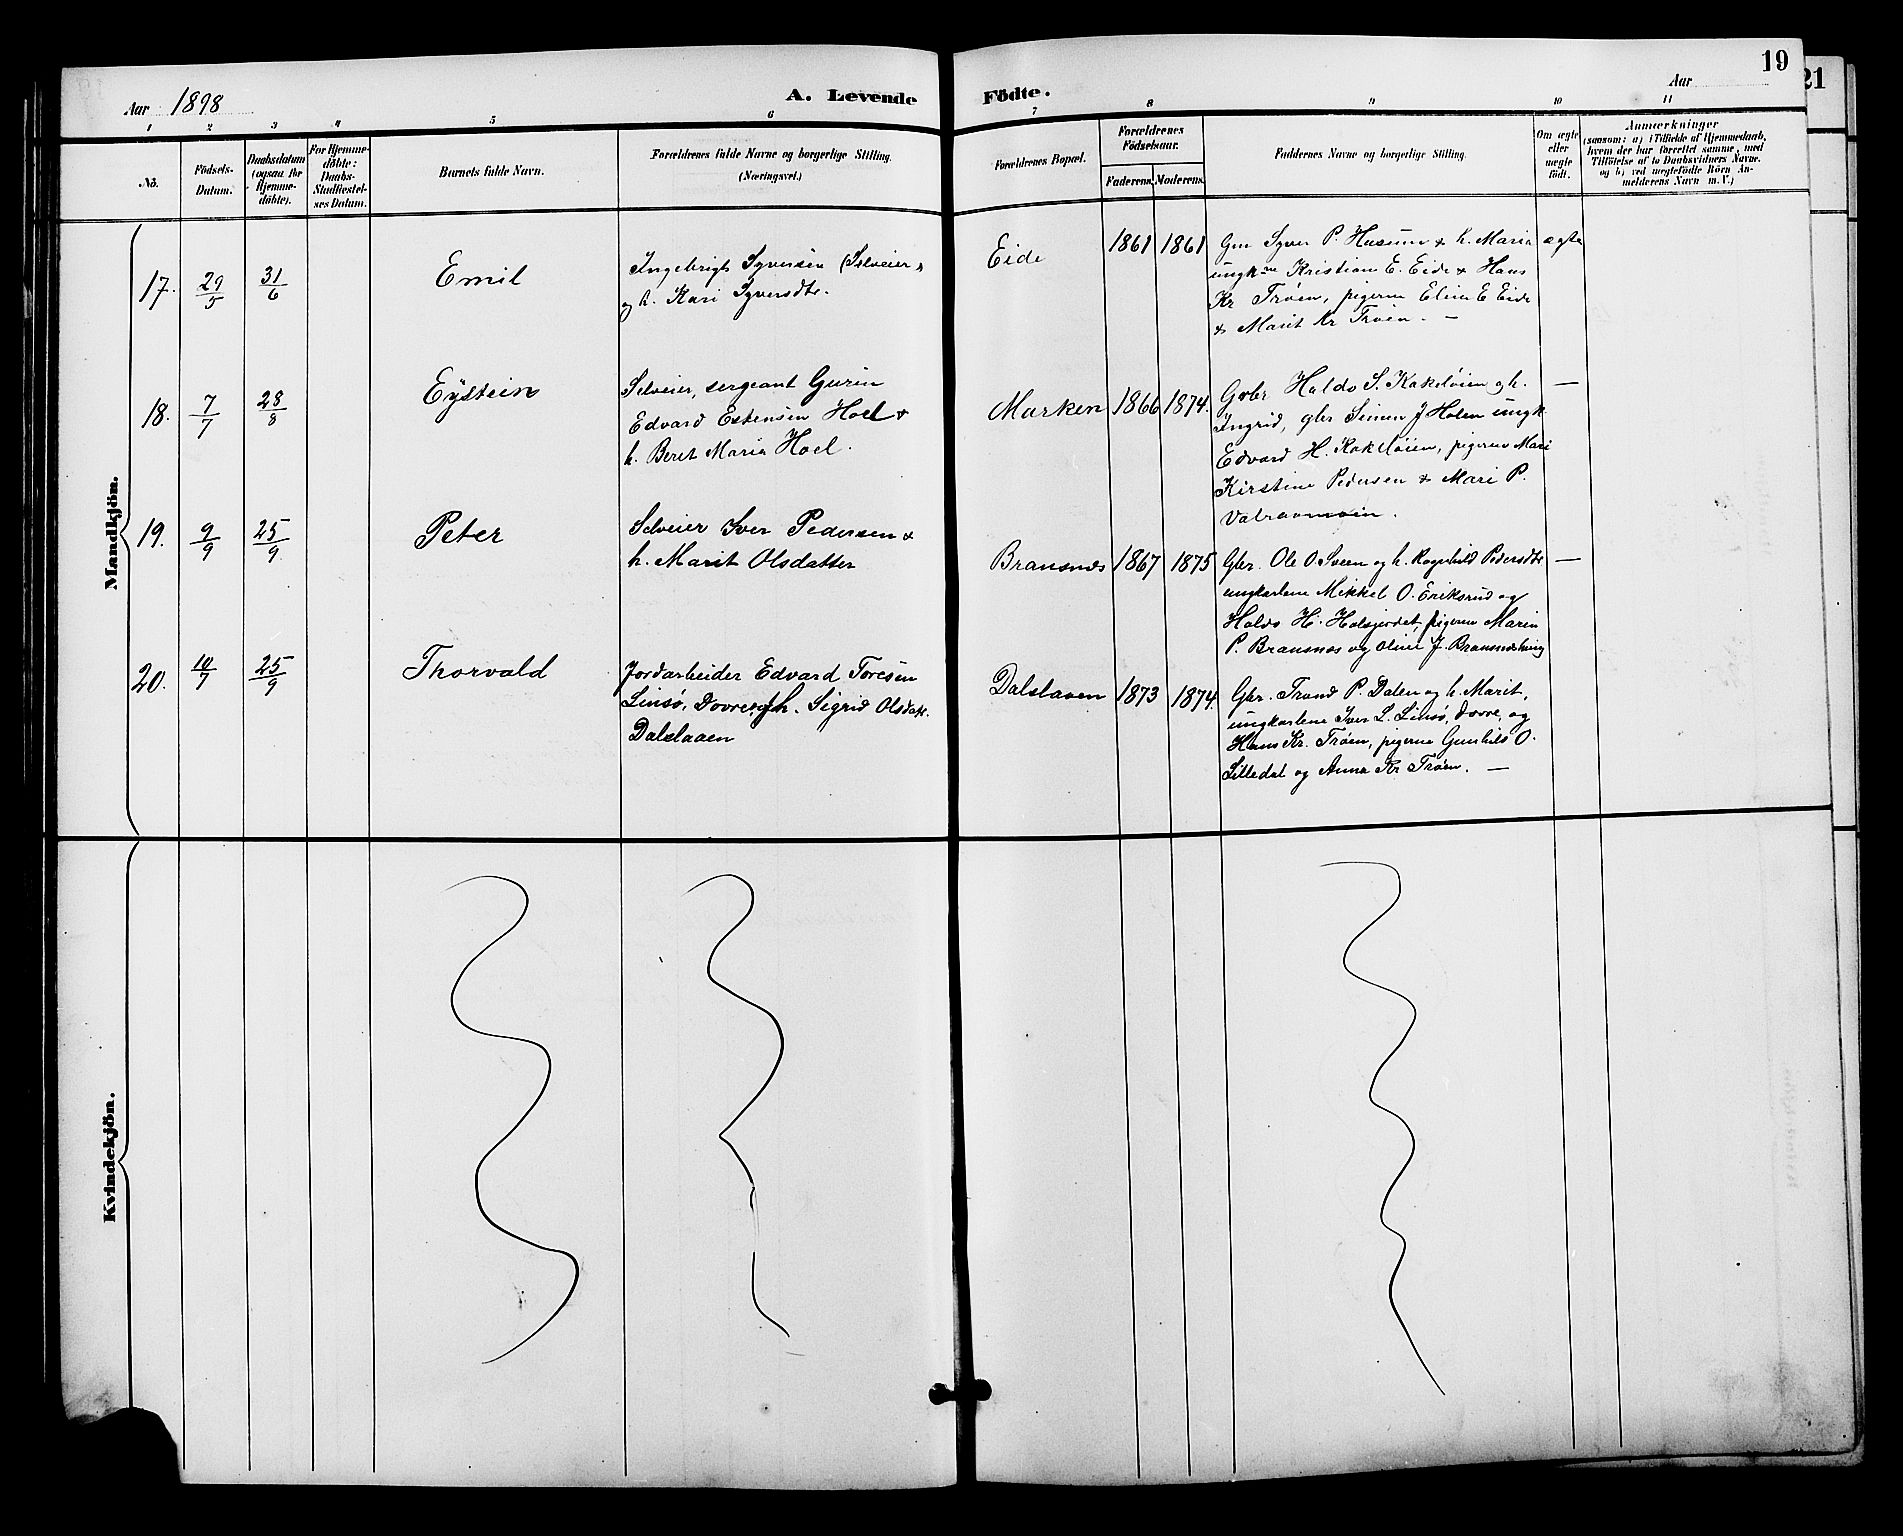 19
21
Aar 1898
A. Levende
Födte.
Aar
1 2 3 4 5 6 7 8 9 10 11
No.
Födsels-
Datum.
Daabsdatum
(ogsaa for
Hjemme-
döbte).
For Hjemme-
döbte:
Daabs-
Stadfæstel-
ses Datum.
Barnets fulde Navn.
Forældrenes fulde Navne og borgerlige Stilling.
(Næringsvei.)
Forældrenes Bopæl.
Forældrenes
Födselsaar.
Faderens.
Moderens.
Faddernes Navne og borgerlige Stilling.
Om ægte
eller
uægte
födt.
Anmærkninger
(saasom: a) i Tilfælde af Hjemmedaab,
hvem der har forrettet samme, med
Tilföielse af to Daabsvidners Navne.
og b) ved uægtefödte Börn An-
melderens Navn m. V.)
Mandkjön.
17.
29/5
31/6
Emil
Ingebrigt Syversen (Selveier)
og h. Kari Syversdtr.
Eide
1861
1861
Gm Syver P. Husum & h. Maria
ungkne Kristian E. Eide & Hans
Kr Trøen, pigerne Eline E Eide
& Marit Kr Trøen. —
ægte
18.
7/7
28/8
Eystein
Selveier, sergeant Gurin
Edvard Estensen Hoel &
h. Beret Maria Hoel.
Marken
1866
1874.
Gbr Haldo S. Kakeløien og h.
Ingrid, gbr Simen J Holen ungk
Edvard H. Kakeløien, pigerne Mari
Kirstine Pedersen & Mari P.
Valraamoin.
—
19.
9/9
25/9
Peter
Selveier Iver Pedersen &
h. Marit Olsdatter
Bransnes
1867
1875
Gbr. Ole O. Sveen og h. Ragnhild Pedersdtr
ungkarlene Mikkel O. Eriksrud og
Haldo H. Holsjordet, pigerne Marin
P. Bransnes og Oline J. Bransneshaug
—
20.
10/7
25/9
Thorvald
Jordarbeider Edvard Toresen
Linsø, Dovre, og h. Sigrid Olsdatt.
Dalslaaen
Dalslaaen
1873
1874.
Gbr. Trond P. Dalen og h. Marit,
ungkarlene Iver L. Linsø, Dovre, og
Hans Kr. Trøen, pigerne Gunhild O.
Lilledal og Anna Kr Trøen. —
Kvindekjön.